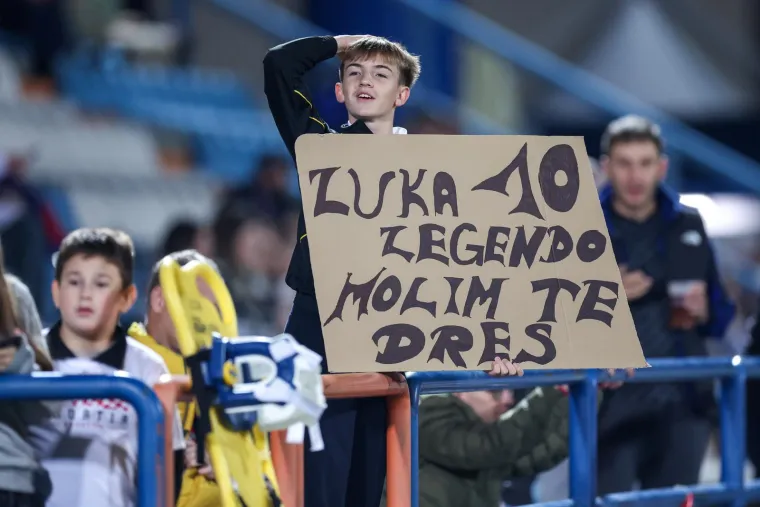 ZUKA 10
LEGENDO
MOLIM TE
DRES